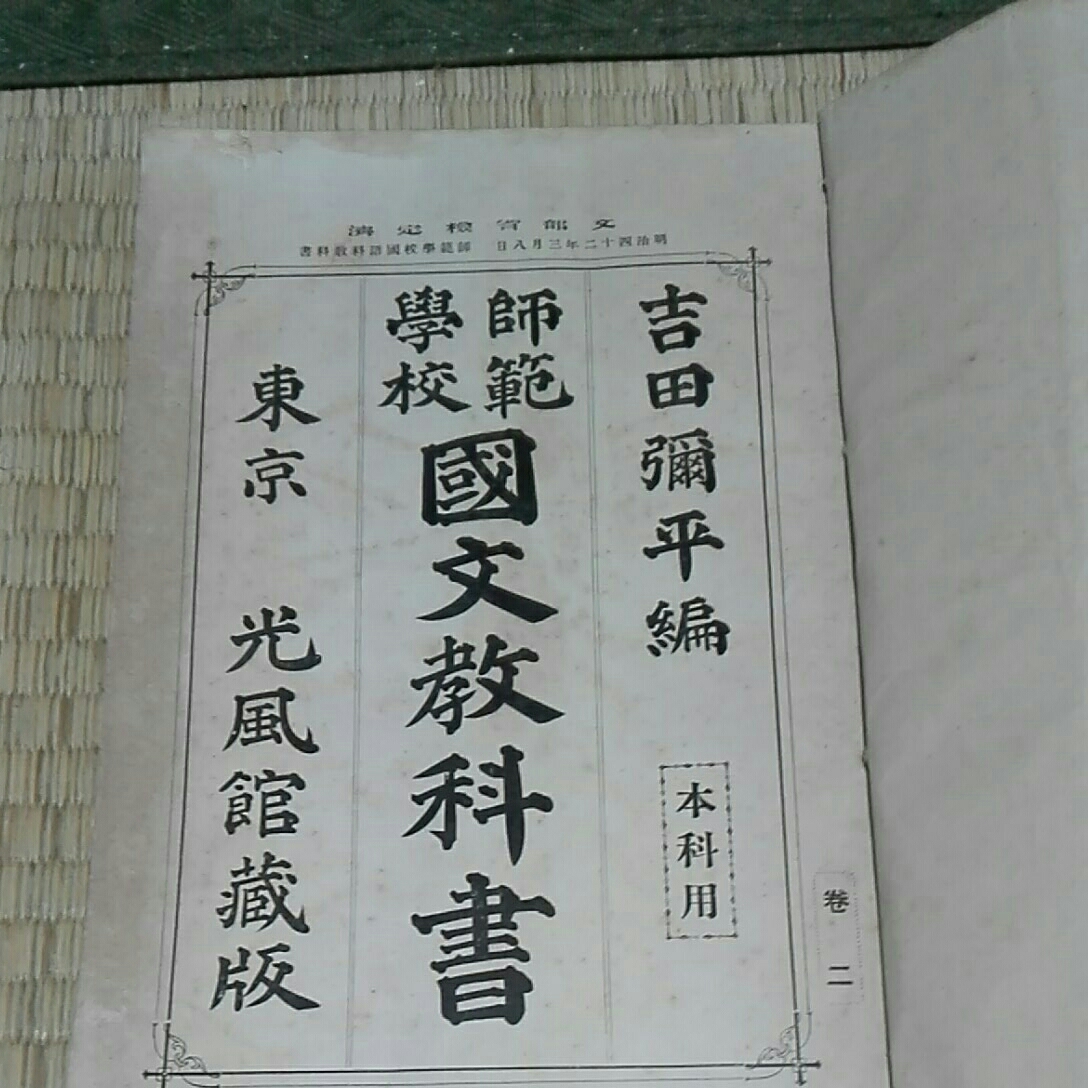 文部省檢定濟
明治四十二年三月八日 師範學校國語科教科書
吉田彌平編
本科用
師範
學校
國文教科書
東京 光風館藏版
卷二